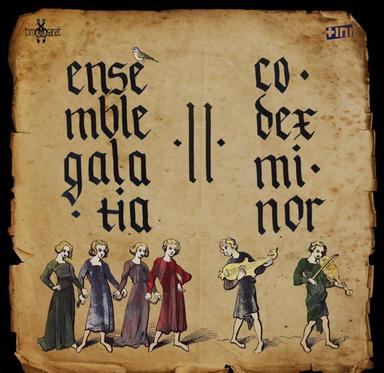 tim sanat
ense
mble
gala
· tia
· || ·
co ·
dex
mi ·
nor